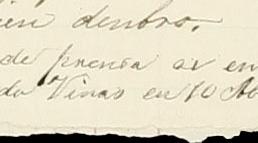 ien dentro.
de prensa av en
da Vinas en 10 Ab